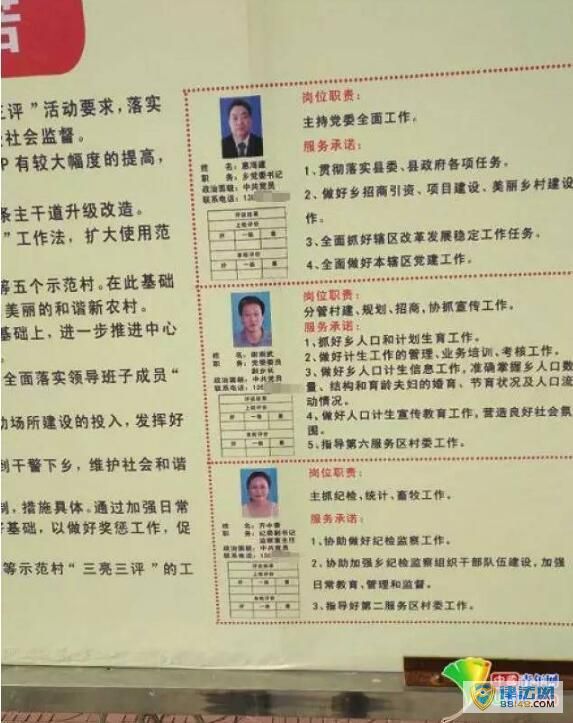 三评”活动要求,落实
社会监督。
P 有较大幅度的提高,
条主干道升级改造。
”工作法,扩大使用范
等五个示范村。在此基础
美丽的和谐新农村。
基础上,进一步推进中心
全面落实领导班子成员“
动场所建设的投入,发挥好
到干警下乡,维护社会和谐
制,措施具体。通过加强日常
基础,以做好奖惩工作,促
等示范村“三亮三评”的工
姓 名:
职 务:乡党委书记
政治面貌:中共党员
联系电话:13
评议结果
上级评价
好 一般 差
好 一般 差
岗位职责:
主持党委全面工作。
服务承诺:
1、贯彻落实县委、县政府各项任务。
2、做好乡招商引资、项目建设、美丽乡村建设
作。
3、全面抓好辖区改革发展稳定工作任务。
4、全面做好本辖区党建工作。
姓 名:
职 务:党委委员
副乡长
政治面貌:中共党员
联系电话:13
评议结果
上级评价
好 一般 差
好 一般 差
岗位职责:
分管村建、规划、招商,协抓宣传工作。
服务承诺:
1、抓好乡人口和计划生育工作。
2、做好计生工作的管理、业务培训、考核工作。
3、做好乡人口计生信息工作,准确掌握乡人口数
量、结构和育龄夫妇的婚育、节育状况及人口流
动情况。
4、做好人口计生宣传教育工作,营造良好社会氛
围。
5、指导第六服务区村委工作。
姓 名:
职 务:纪委副书记
监察室主任
政治面貌:中共党员
联系电话:13
评议结果
上级评价
好 一般 差
好 一般 差
岗位职责:
主抓纪检,统计、畜牧工作。
服务承诺:
1、协助做好纪检监察工作。
2、协助加强乡纪检监察组织干部队伍建设,加强
日常教育、管理和监督。
3、指导好第二服务区村委工作。
律法网
88148.COM